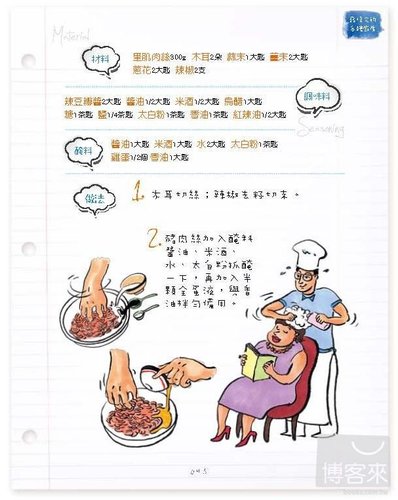 Material
材料
里肌肉絲300g 木耳2朵 蒜末1大匙 薑末2大匙
蔥花2大匙 辣椒2支
調味料
Seasoning
辣豆瓣醬2大匙 醬油1/2大匙 米酒1/2大匙 烏醋1大匙
糖1茶匙 鹽1/4茶匙 太白粉1茶匙 香油1茶匙 紅辣油1/2大匙
醃料
醬油1大匙 米酒1大匙 水2大匙 太白粉1大匙
雞蛋1/2個 香油1大匙
做法
1. 木耳切絲；辣椒去籽切末。
2. 豬肉絲加入醃料
醬油、米酒、
水、太白粉抓醃
一下，再加入半
顆全蛋液，與香
油拌勻備用。
045
博客來